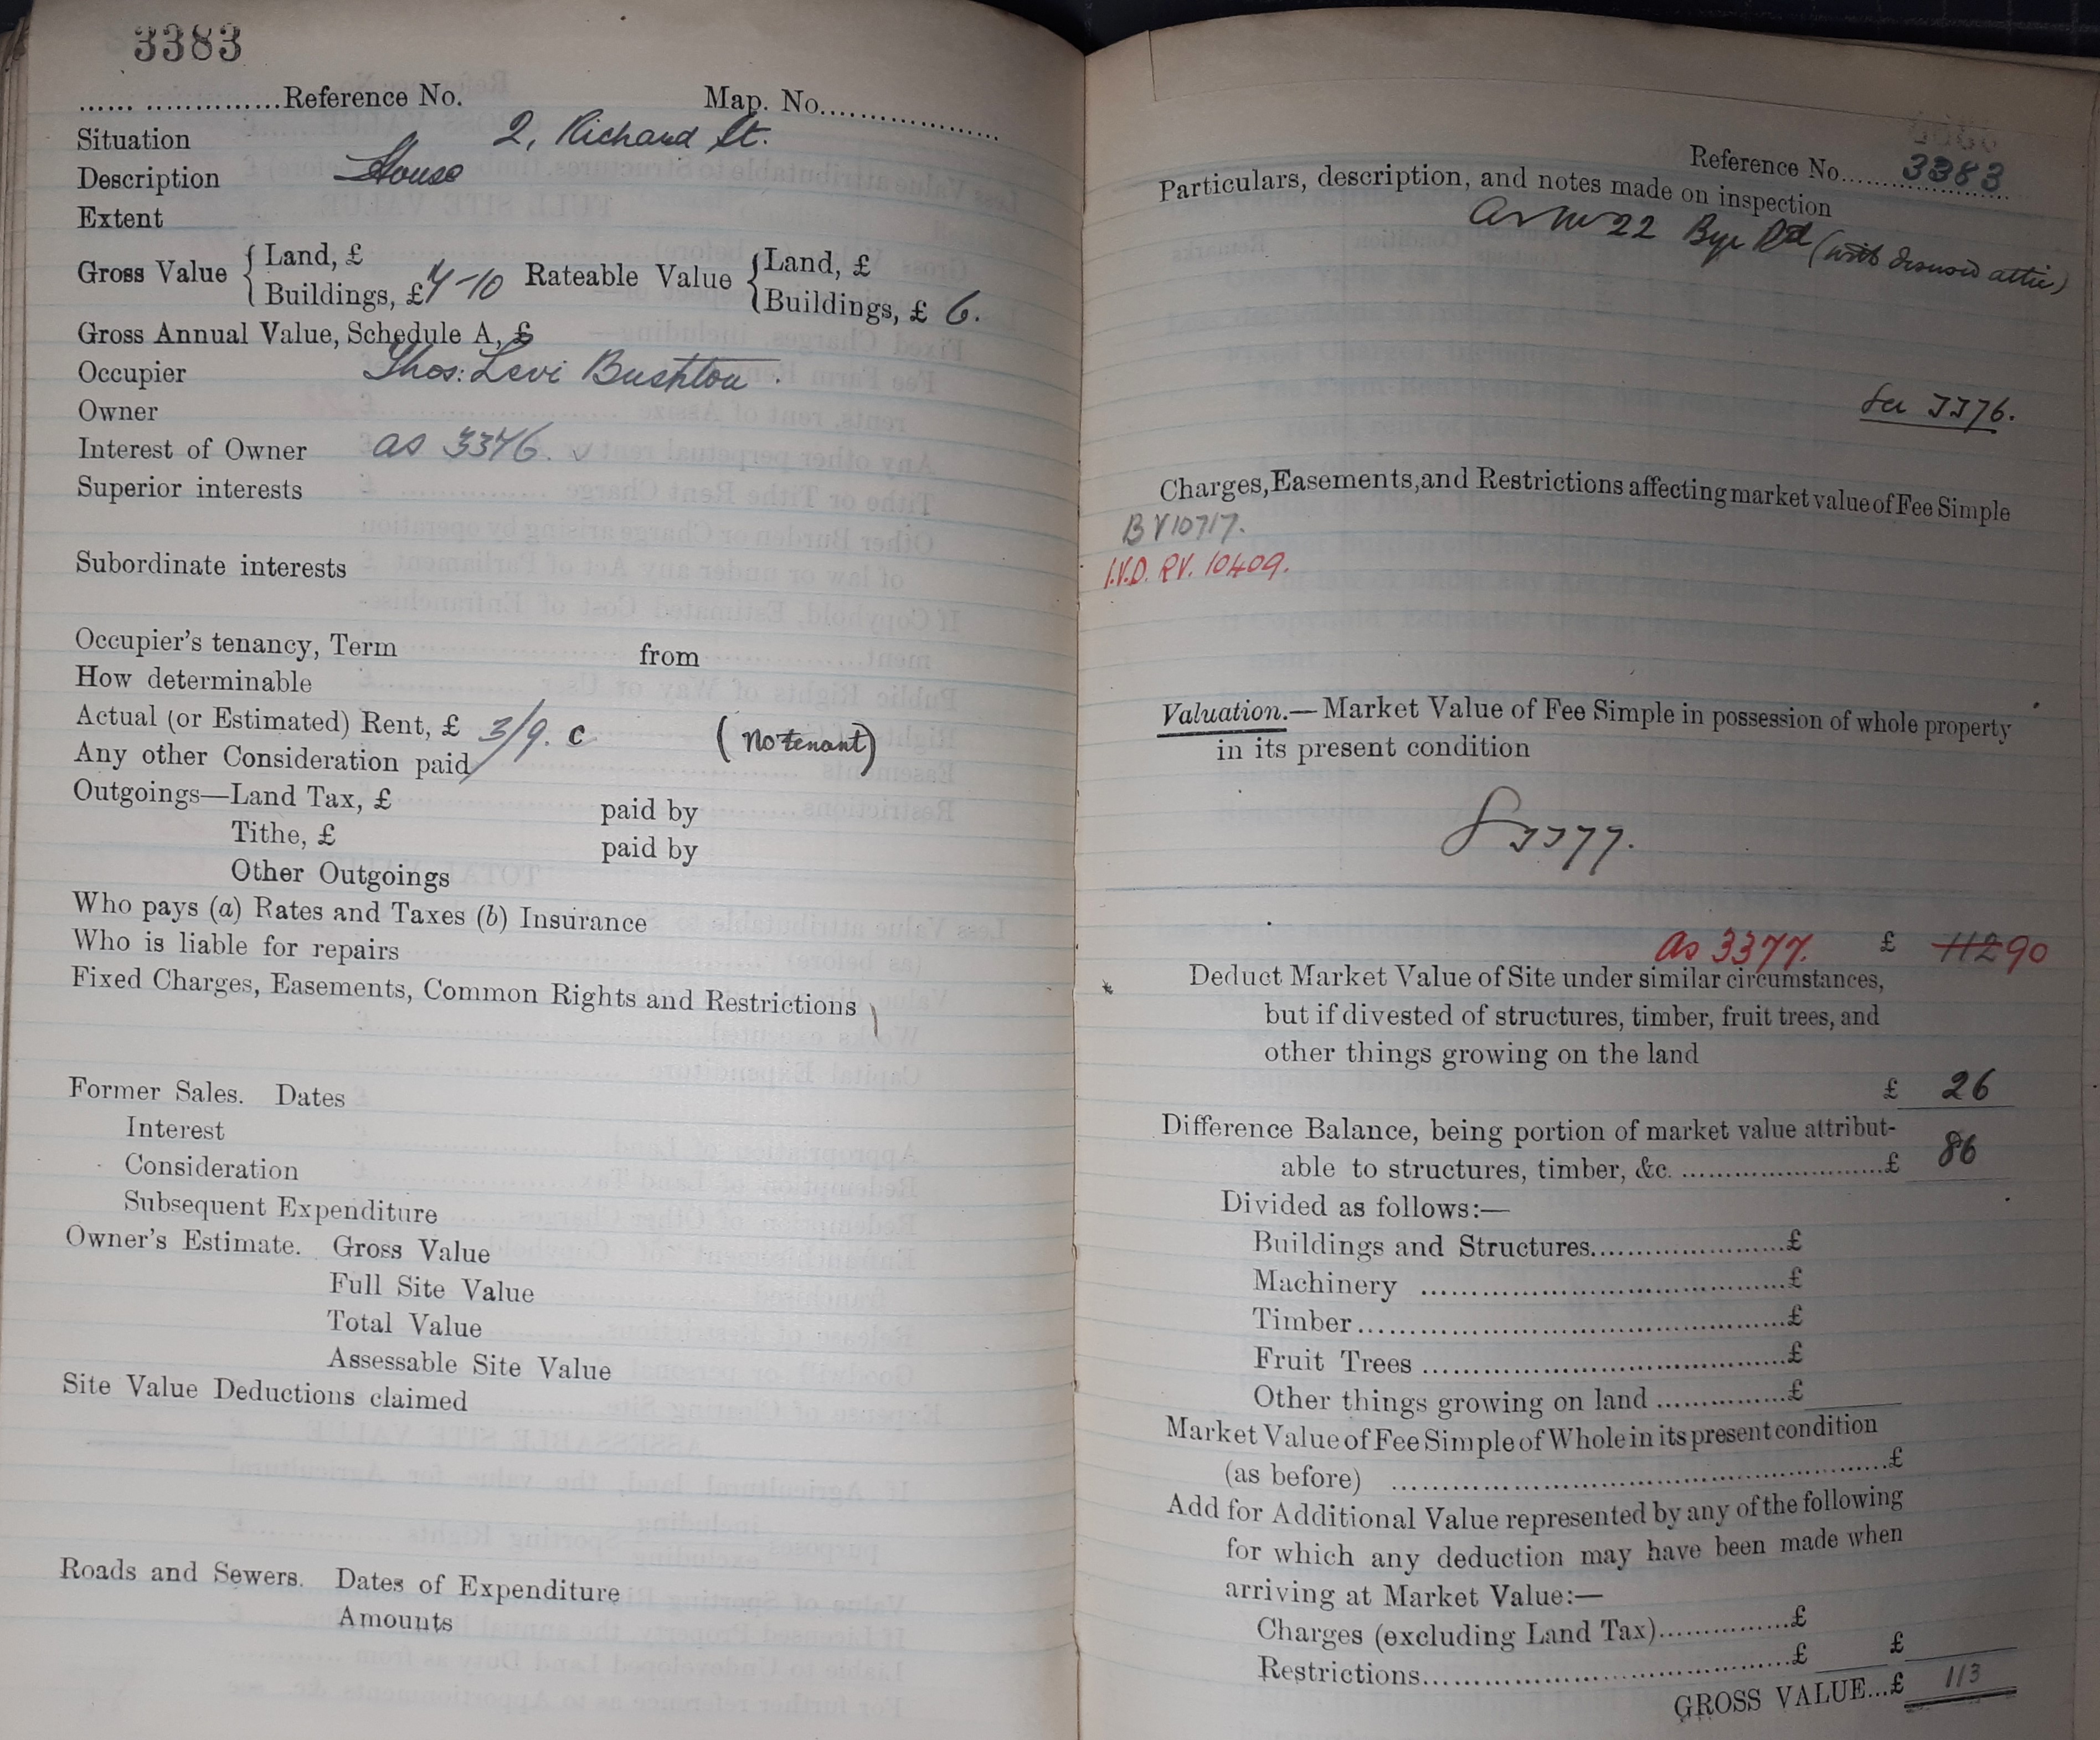 3383
...... ..............Reference No. Map. No...................
Situation 2, Richard St.
Description House
Extent
Gross Value { Land, £ Rateable Value { Land, £
Buildings, £7-10 Buildings, £ 6.
Gross Annual Value, Schedule A, £
Occupier Thos: Levi
Owner
Interest of Owner as 3376.
Superior interests
Subordinate interests
Occupier's tenancy, Term from
How determinable
Actual (or Estimated) Rent, £ 3/9. c (No tenant)
Any other Consideration paid
Outgoings—Land Tax, £ paid by
Tithe, £ paid by
Other Outgoings
Who pays (a) Rates and Taxes (b) Insurance
Who is liable for repairs
Fixed Charges, Easements, Common Rights and Restrictions
Former Sales. Dates
Interest
Consideration
Subsequent Expenditure
Owner's Estimate. Gross Value
Full Site Value
Total Value
Assessable Site Value
Site Value Deductions claimed
Roads and Sewers. Dates of Expenditure
Amounts
Reference No. 3383
Particulars, description, and notes made on inspection
22 Rd (with disused attic)
See 3376.
Charges, Easements, and Restrictions affecting market value of Fee Simple
BV10717.
I.V.D. RV. 10409.
Valuation.— Market Value of Fee Simple in possession of whole property
in its present condition
3377.
As 3377. £ 112 90
Deduct Market Value of Site under similar circumstances,
but if divested of structures, timber, fruit trees, and
other things growing on the land
£ 26
Difference Balance, being portion of market value attribut-
able to structures, timber, &c. ........................£ 86
Divided as follows:—
Buildings and Structures.......................£
Machinery ............................................£
Timber....................................................£
Fruit Trees ............................................£
Other things growing on land ...............£
Market Value of Fee Simple of Whole in its present condition
(as before) ............................................................£
Add for Additional Value represented by any of the following
for which any deduction may have been made when
arriving at Market Value:—
Charges (excluding Land Tax)...............£
Restrictions............................................£ £
GROSS VALUE...£ 113